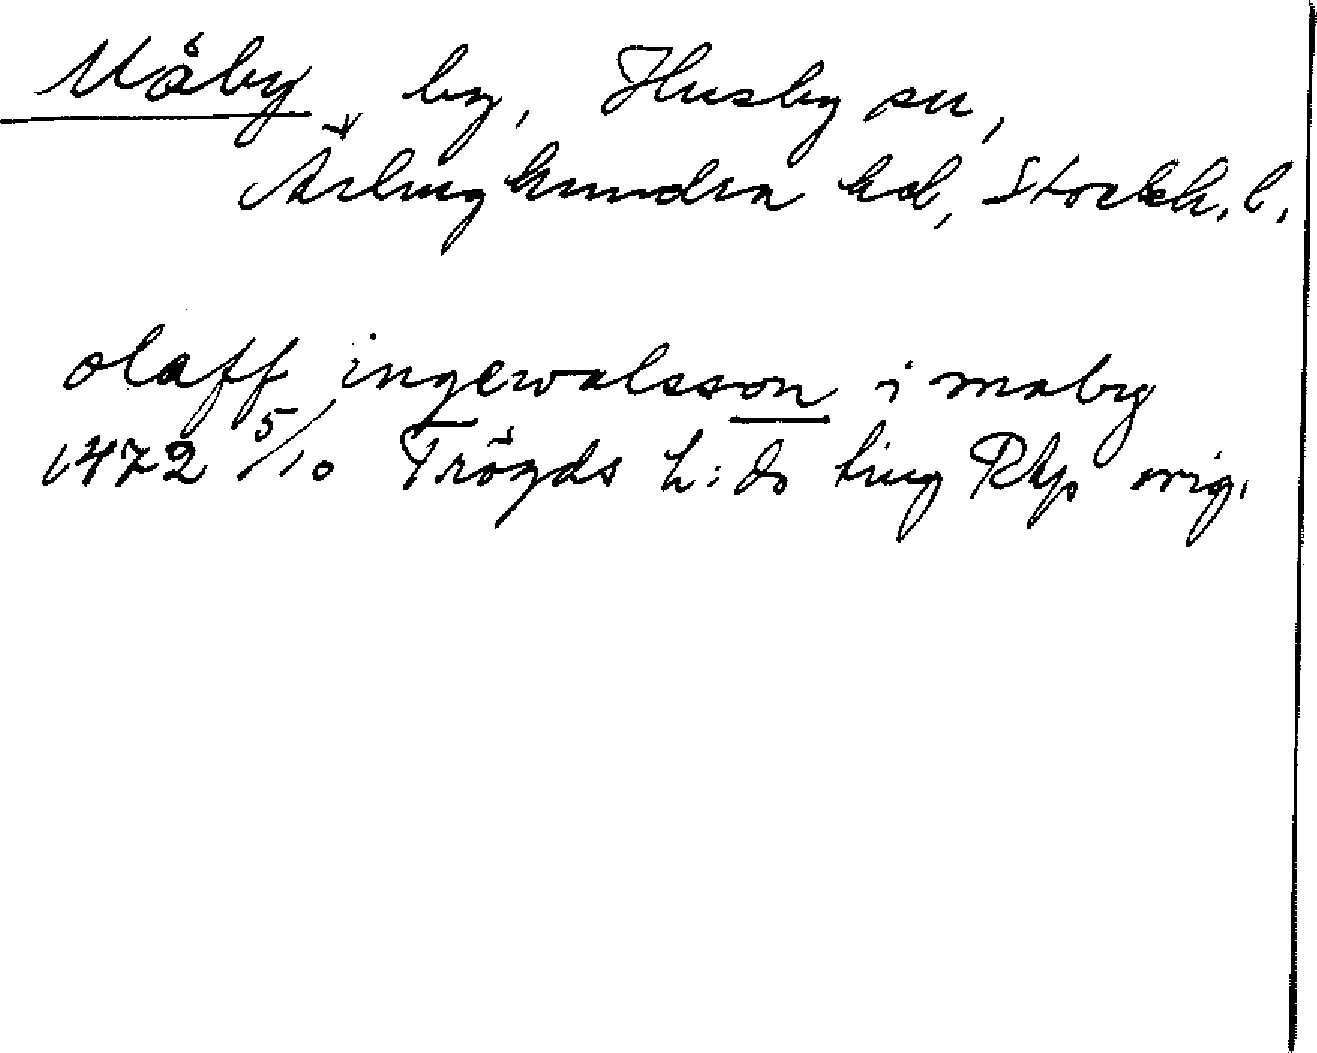 Måby by, Husby sn,
Ärlinghundra hd, Stockh. l.
olaff ingewalsson i maby
1472 5/10 Trögds h:ds ting RAp orig.